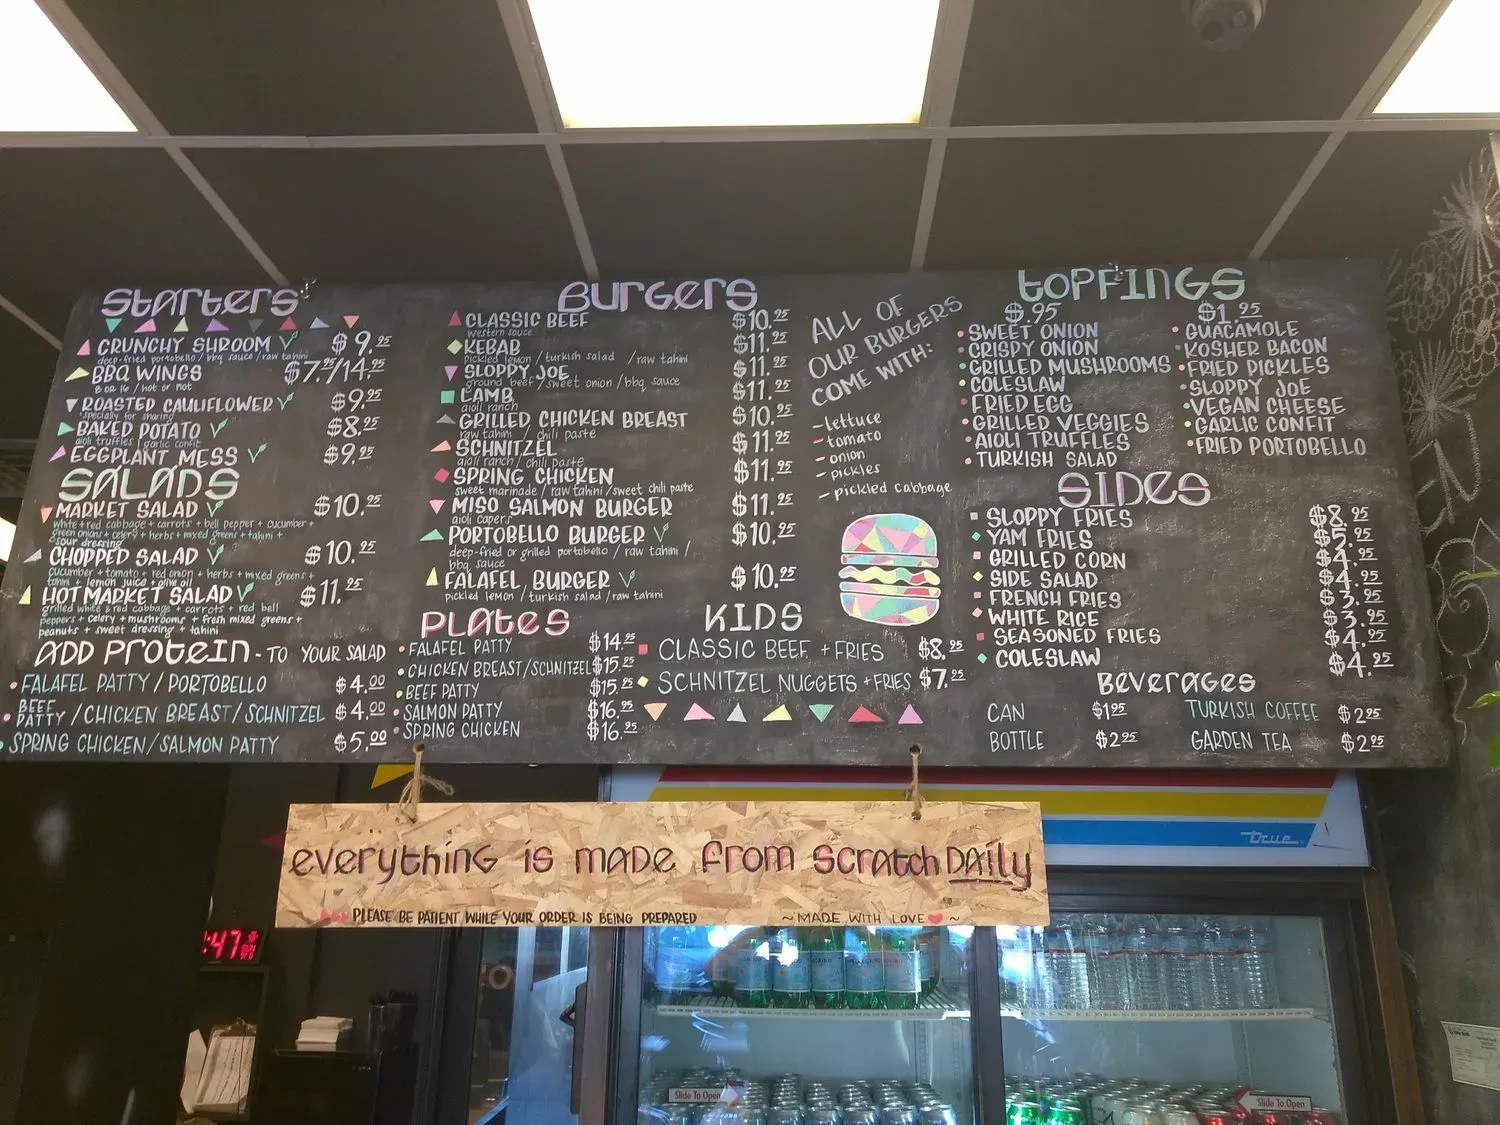 Starters
CRUNCHY SHROOM $9.95
deep-fried portobello / bbq sauce / raw tahini
BBQ WINGS $7.95/14.95
8 or 16 / hot or not
ROASTED CAULIFLOWER $9.95
*specially for sharing
BAKED POTATO $8.95
aioli truffles / garlic confit
EGGPLANT MESS $9.95
SALADS
MARKET SALAD $10.95
white + red cabbage + carrots + bell pepper + cucumber +
green onions + celery + herbs + mixed greens + tahini +
sour dressing
CHOPPED SALAD $10.95
cucumber + tomato + red onion + herbs + mixed greens +
tahini + lemon juice + olive oil
HOT MARKET SALAD $11.95
grilled white & red cabbage + carrots + red bell
peppers + celery + mushrooms + fresh mixed greens +
peanuts + sweet dressing + tahini
ADD Protein - TO YOUR SALAD
FALAFEL PATTY / PORTOBELLO $4.00
BEEF PATTY / CHICKEN BREAST / SCHNITZEL $4.00
SPRING CHICKEN / SALMON PATTY $5.00
BURGERS
CLASSIC BEEF $10.95
western sauce
KEBAB $11.95
pickled lemon / turkish salad / raw tahini
SLOPPY JOE $11.95
ground beef / sweet onion / bbq sauce
LAMB $11.95
aioli ranch
GRILLED CHICKEN BREAST $10.95
raw tahini chili paste
SCHNITZEL $11.95
aioli ranch / chili paste
SPRING CHICKEN $11.95
sweet marinade / raw tahini / sweet chili paste
MISO SALMON BURGER $11.95
aioli capers
PORTOBELLO BURGER $10.95
deep-fried or grilled portobello / raw tahini /
bbq sauce
FALAFEL BURGER $10.95
pickled lemon / turkish salad / raw tahini
PLAtes
FALAFEL PATTY $14.95
CHICKEN BREAST/SCHNITZEL $15.95
BEEF PATTY $15.95
SALMON PATTY $16.95
SPRING CHICKEN $16.95
KIDS
CLASSIC BEEF + FRIES $8.95
SCHNITZEL NUGGETS + FRIES $7.95
ALL OF
OUR BURGERS
COME WITH:
- lettuce
- tomato
- onion
- pickles
- pickled cabbage
tOPPINGS
$.95
SWEET ONION
CRISPY ONION
GRILLED MUSHROOMS
COLESLAW
FRIED EGG
GRILLED VEGGIES
AIOLI TRUFFLES
TURKISH SALAD
$1.95
GUACAMOLE
KOSHER BACON
FRIED PICKLES
SLOPPY JOE
VEGAN CHEESE
GARLIC CONFIT
FRIED PORTOBELLO
SIDES
SLOPPY FRIES $8.95
YAM FRIES $5.95
GRILLED CORN $4.95
SIDE SALAD $4.95
FRENCH FRIES $3.95
WHITE RICE $3.95
SEASONED FRIES $4.95
COLESLAW $4.95
BeVERAGES
CAN $1.95
BOTTLE $2.95
TURKISH COFFEE $2.95
GARDEN TEA $2.95
everything is made from scratch DAily
PLEASE BE PATIENT WHILE YOUR ORDER IS BEING PREPARED
~ MADE WITH LOVE ~
true
:47
Slide To Open
Slide To Open